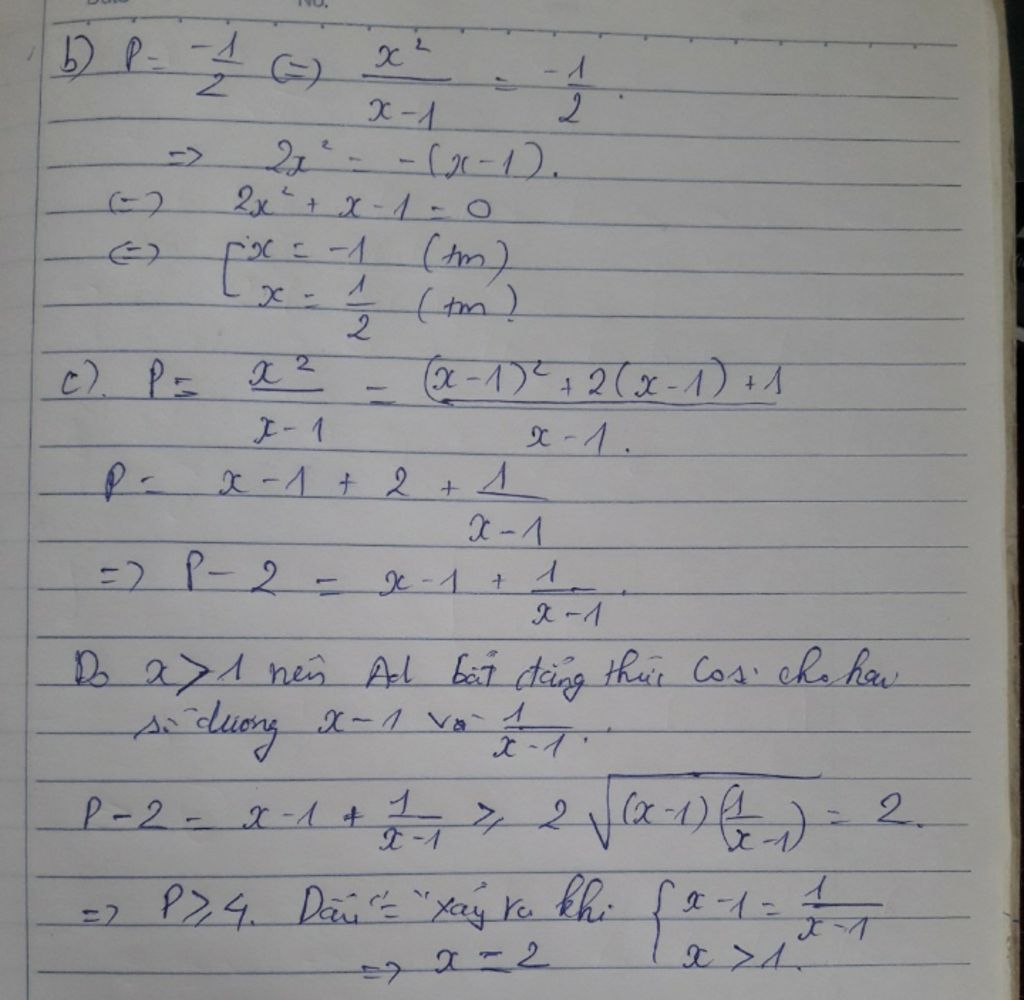 No.
b) P = -1/2 (=) x²/(x-1) = -1/2.
=> 2x² = -(x-1).
(=) 2x² + x - 1 = 0
(=) [ x = -1 (tm)
x = 1/2 (tm)
c). P = x²/(x-1) = ((x-1)² + 2(x-1) + 1)/(x-1).
P = x-1 + 2 + 1/(x-1)
=> P - 2 = x-1 + 1/(x-1).
Do x > 1 nên Ad bất đẳng thức Cosi cho hai
số dương x-1 và 1/(x-1).
P-2 = x-1 + 1/(x-1) ≥ 2√((x-1)(1/(x-1))) = 2.
=> P ≥ 4. Dấu "=" xảy ra khi { x-1 = 1/(x-1)
=> x = 2 x > 1.